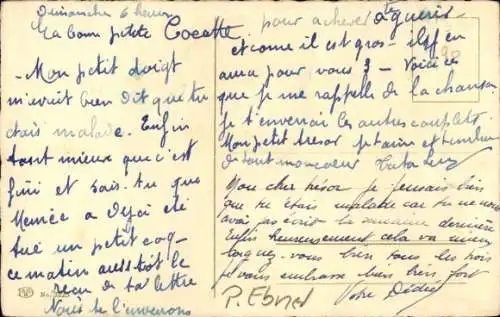 Dimanche 6 heures
La bonne petite Cocotte
Mon petit doigt
m'avait bien dit que tu
étais malade. Enfin
tant mieux que c'est
fini et sais-tu que
Mémée a déjà été
tué un petit coq
ce matin aussitôt le
reçu de ta lettre
Nous te l'enverrons
pour achever de guérir
et come il est gros il y en
aura pour vous 3 - Voici ce
que je me rappelle de la chanson
je t'enverrai les autres couplets
Mon petit trésor je t'aime et t'embrasse
de tout mon coeur Tata
Mon cher trésor je pensais bien
que tu étais malade car tu ne nous
avais pas écrit la semaine dernière
Enfin heureusement cela va mieux
soignez vous bien tous les trois
je vous embrasse bien bien fort
Votre Dédée
P. Ebner